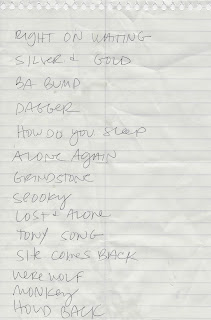 RIGHT ON WAITING
SILVER & GOLD
BA BUMP
DAGGER
HOW DO YOU SLEEP
ALONE AGAIN
GRINDSTONE
SPOOKY
LOST & ALONE
TONY SONG
SHE COMES BACK
WEREWOLF
MONKEY
HOLD BACK